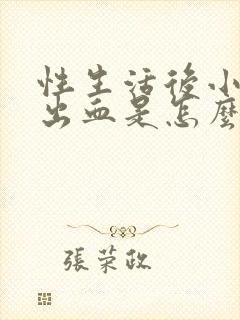 性生活後小
出血是怎麼
張荣政